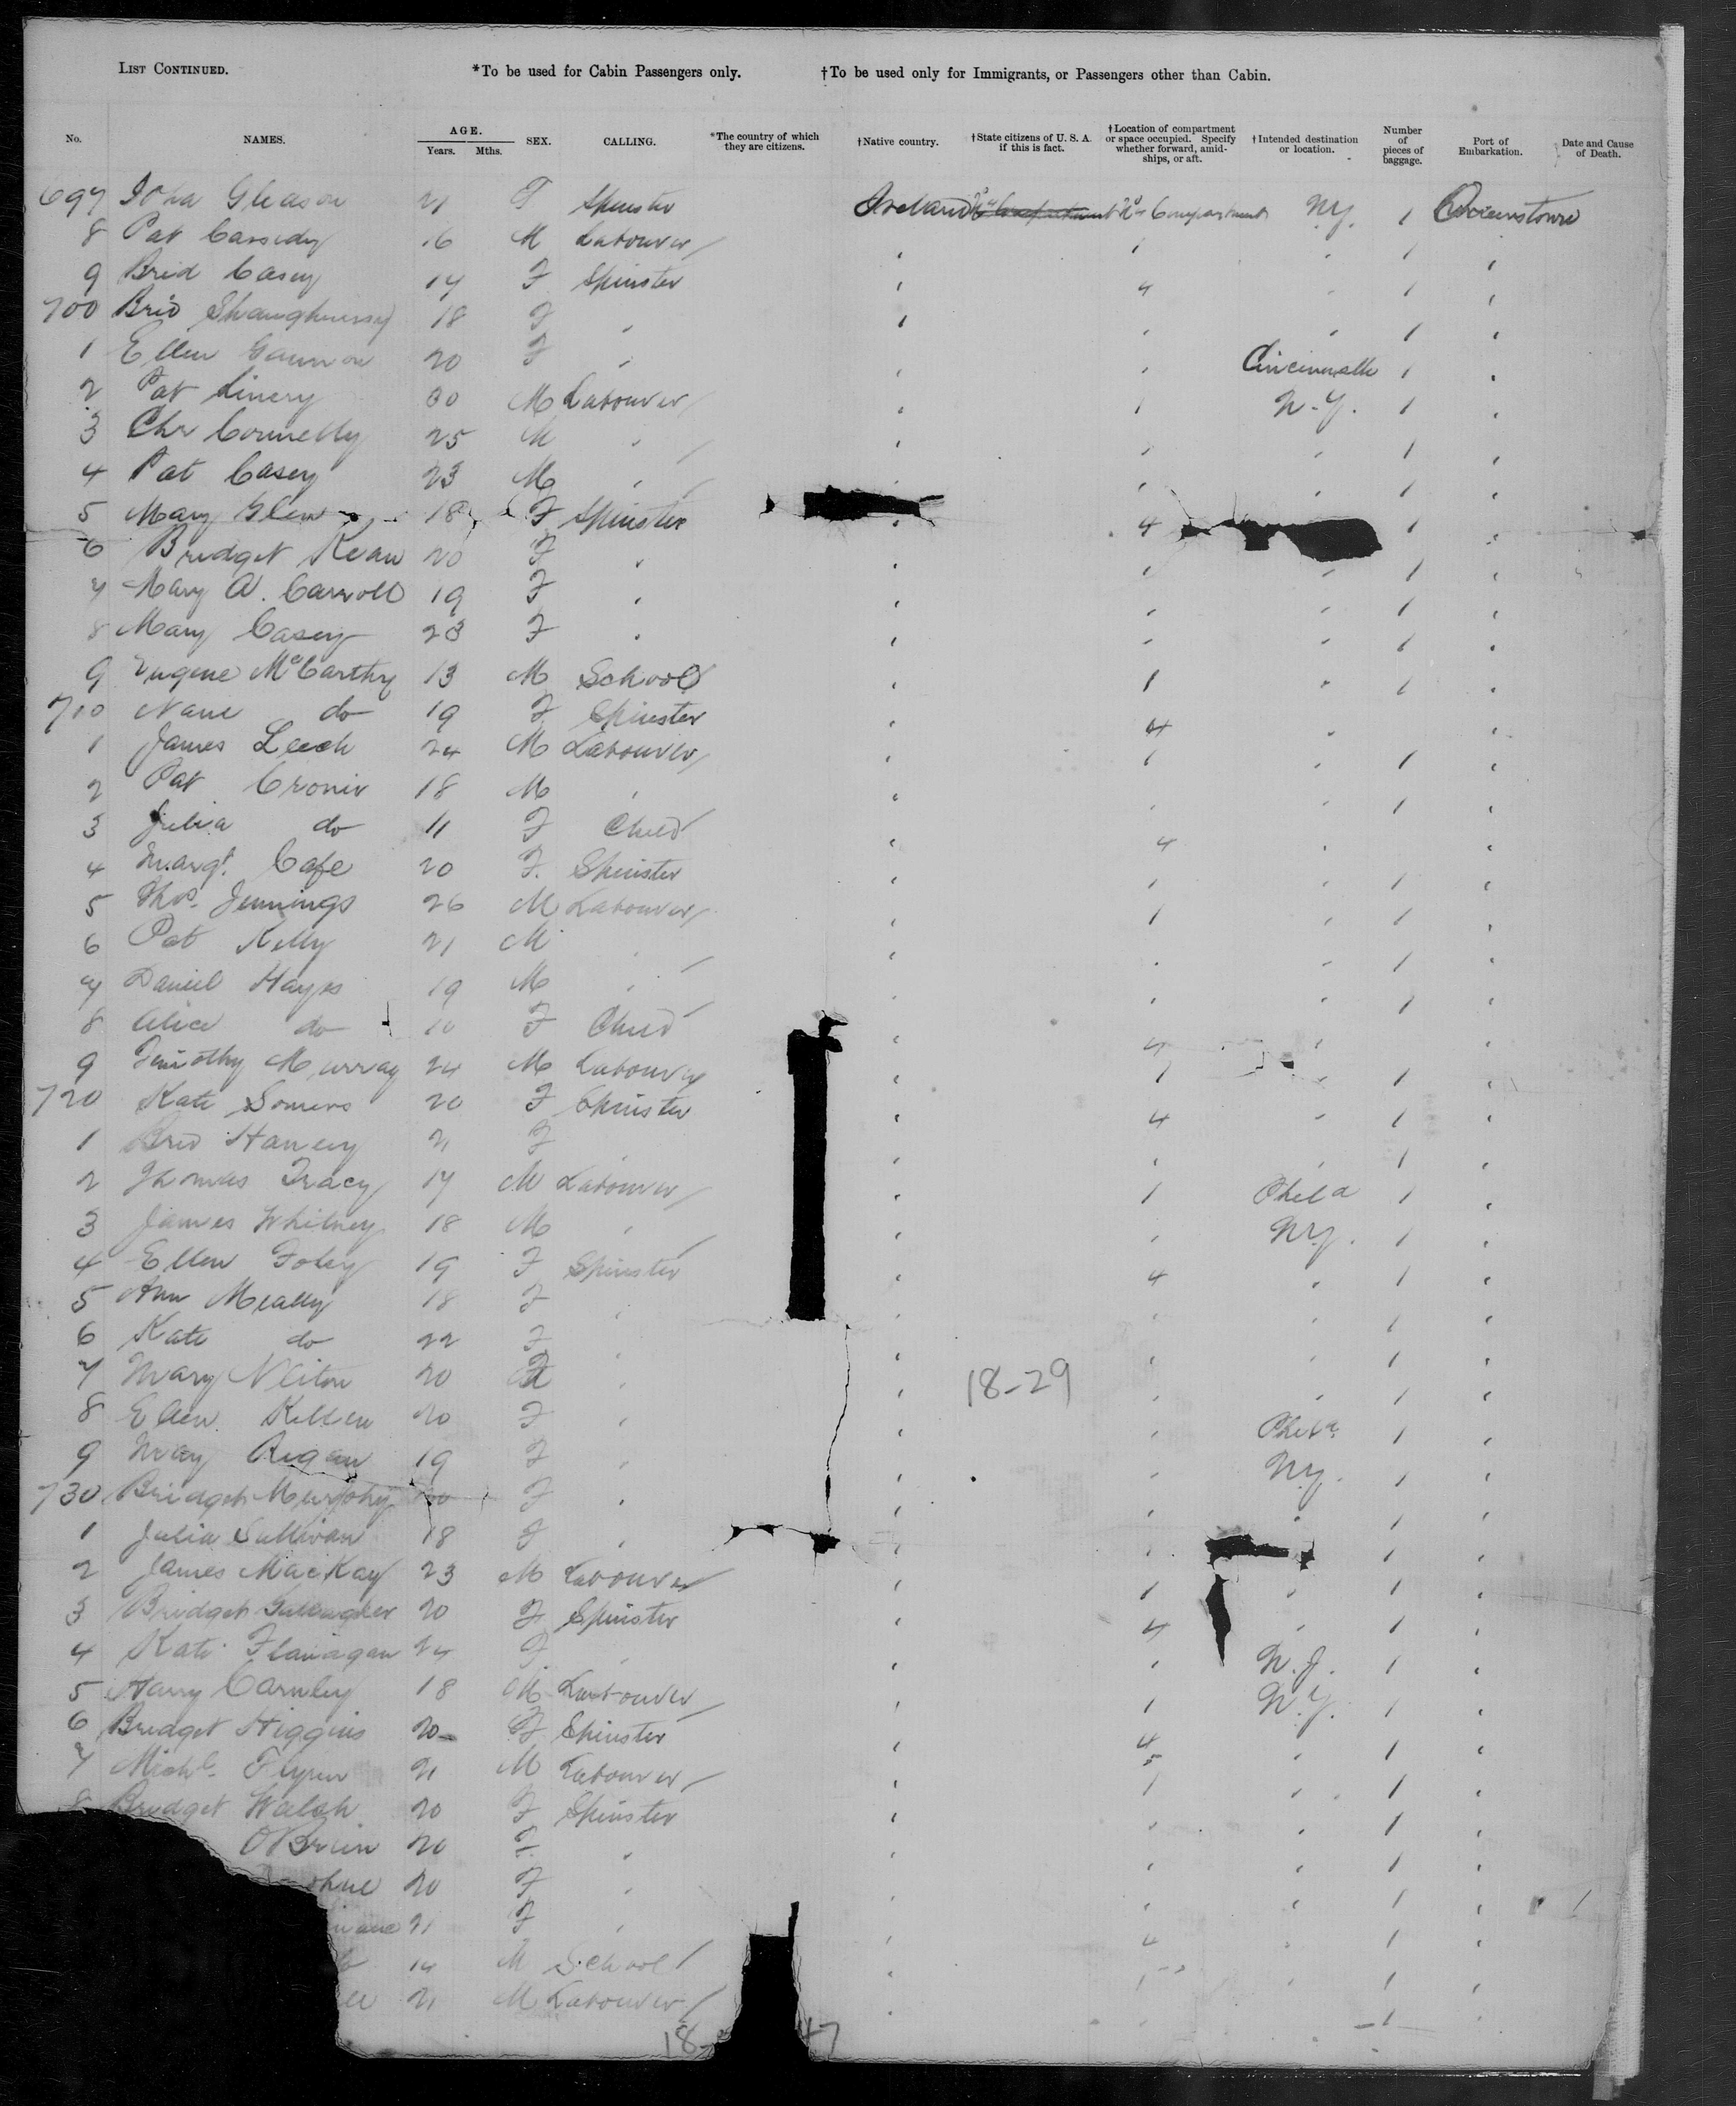 LIST CONTINUED. *To be used for Cabin Passengers only. †To be used only for Immigrants, or Passengers other than Cabin.
No. NAMES. AGE. Years. Mths. SEX. CALLING. *The country of which they are citizens. †Native country. †State citizens of U. S. A. if this is fact. †Location of compartment or space occupied. Specify whether forward, amidships, or aft. †Intended destination or location. Number of pieces of baggage. Port of Embarkation. Date and Cause of Death.
697 Gleason 21 F Spinster Ireland Compartment N.Y. 1 Queenstown
8 Pat Cassidy 16 M Labourer 1 " 1 "
9 Brid Casey 17 F Spinster " 4 " 1 "
700 Brid Shaughnessy 18 F " " " " 1 "
1 Ellen Gannon 20 F " " " Cincinnatti 1 "
2 Pat Linery 30 M Labourer " 1 N.Y. 1 "
3 Chr Connelly 25 M " " " " 1 "
4 Pat Casey 23 M " " " " 1 "
5 Mary Glen 18 F Spinster " 4 1 "
6 Bridget Kean 20 F " " " " 1 "
7 Mary A. Carroll 19 F " " " " 1 "
8 Mary Casey 23 F " " " " 1 "
9 Eugene McCarthy 13 M School " 1 " 1 "
710 Nane do 19 F Spinster " 4 " "
1 James Leech 24 M Labourer " 1 " 1 "
2 Pat Cronin 18 M " " " " 1 "
3 Julia do 11 F Child " 4 " "
4 Margt. Cafe 20 F. Spinster " " " 1 "
5 Thos. Jennings 26 M Labourer " 1 " 1 "
6 Pat Kelly 21 M " " " " 1 "
7 Daniel Hayes 19 M " " " " 1 "
8 Alice do 10 F Child " 4 " "
9 Timothy Murray 24 M Labourer " 1 " 1 "
720 Kate Somers 20 F Spinster " 4 " 1 "
1 Brid Harvey 21 F " " " " 1 "
2 Thomas Tracy 17 M Labourer " 1 Phila 1 "
3 James Whitney 18 M " " " N.Y. 1 "
4 Ellen Foley 19 F Spinster " 4 " 1 "
5 Ann Meally 18 F " " " " 1 "
6 Kate do 22 F " " " " 1 "
7 Mary 20 F " " 18-29 " " 1 "
8 Ellen Killen 20 F " " " Phila. 1 "
9 May Regan 19 F " " " N.Y. 1 "
730 Bridget Murphy F " " " " 1 "
1 Julia Sullivan 18 F " " " 1 "
2 James MacKay 23 M Labourer " 1 " 1 "
3 Bridget Gallagher 20 F Spinster " 4 " 1 "
4 Kate Flanagan 24 F " " " N.J. 1 "
5 Harry Carnley 18 M Labourer " 1 N.Y. 1 "
6 Bridget Higgins 20 F Spinster " 4 " 1 "
7 Michl. Flynn 21 M Labourer " 1 " 1 "
8 Bridget Walsh 20 F Spinster " " " 1 "
O'Brien 20 F. " " " " 1 "
20 F " " " " 1 "
21 F " " 4 " 1 "
14 M School " 1 " 1 "
21 M Labourer " " 1 "
18- 47